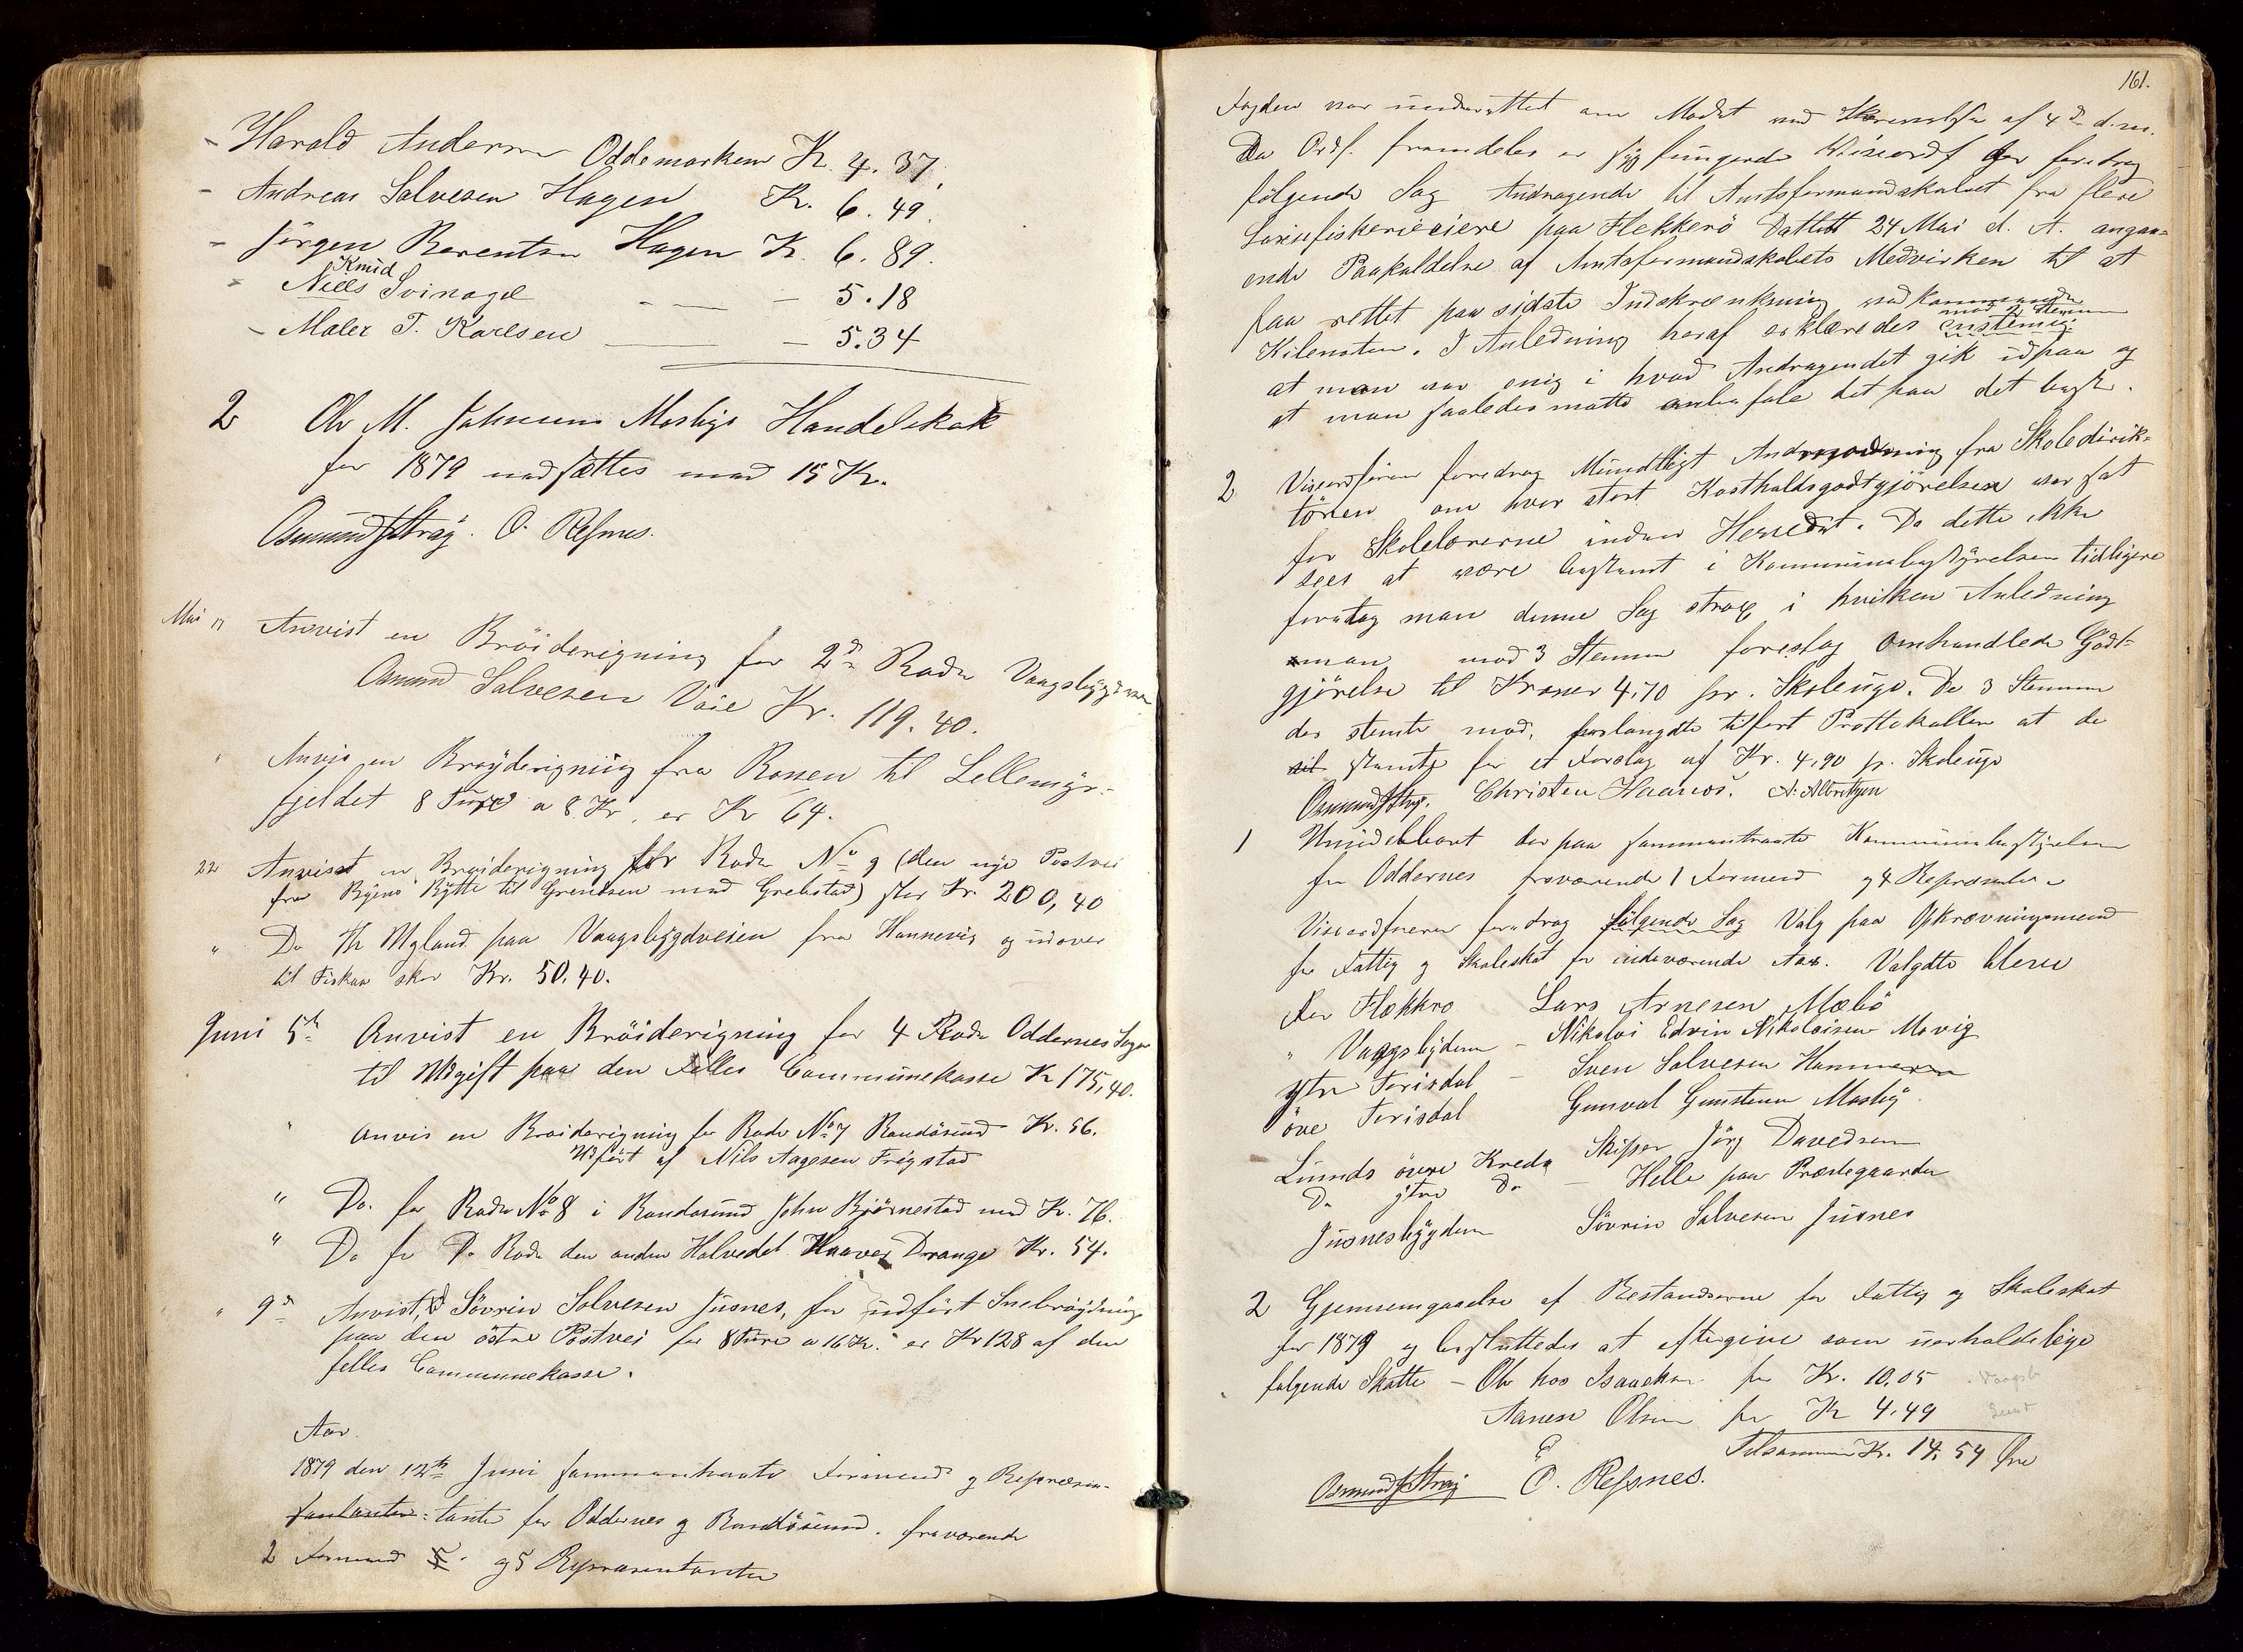 - Harald Andersen Oddemarken Kr. 4. 37.
- Andreas Salvesen Hagen Kr. 6. 49.
- Jörgen Berentsen Hagen Kr. 6. 89.
Knud
- Niels Svinagel - — - 5.18
- Maler T. Karlsen — - 5.34
2 Ole M. Johnsens Mosbys Handelskat
for 1879 nedsættes med 15 Kr.
Osmund Stray. O. Refsnes.
Mai 17 Anvist en Bröiderigning for 2den Rode Vaagsbygdveien
Osmund Salvesen Vaie Kr. 119.40.
" Anvis en Bröyderigning fra Rossen til Lellemyr-
fjeldet 8 Ture a 8 Kr. er Kr 64.
22 Anvisst en Bröiderigning for Rode No 9 (den nye Postvei
fra Rytte til Grendsen med Grebstad) stor Kr. 200,40
" Do Th Myland paa Vaagsbygdveien fra Hannevig og udover
til Fiskaa stor Kr. 50.40.
Juni 5te Anvist en Bröiderigning for 4 Rode Oddernes Sogn
til Udgift paa den Felles Communekasse Kr 175,40.
" Anvis en Broiderigning for Rode No 7 Randösund Kr. 56.
Udfört af Nils Aagesen Frigstad
" Do. for Rode No 8 i Randosund John Bjørnestad med Kr. 76.
" Do for Do Rode den anden Halvedel Haaver Drange Kr. 54.
" 9de Anvist, Sövrin Solvesen Jusnes, for udfört Snebröjdning
paa den östre Postvei for 8 Ture a 16 Kr. er Kr 128 af den
felles Communekasse.
Aar
1879 den 12te Juni sammentraate Formend og Repræsen-
tanter for Oddernes og Randösund. fraværende
2 Formend og 5 Repræsentanter
161.
Fogden var underrettet om Modet ved Skrivelse af 4de d.m.
Da Ordf. fremdeles er syg fungerede Viseordf for foredrog
følgende Sag Andragende til Amtsformandskabet fra flere
Laxefiskerieiere paa Flekkerö Dattett 24 Mai d. A. angaa-
ende Paakaldelse af Amtsformandskabets Medvirken til at
faa rettet paa sidste Indskrænkning ved
mod 2 Stemmer
Kilenoten. I Anledning heraf erklæredes enstemig
at man var enig i hvad Andragendet gik ud paa og
at man saaledes matte anbefale det paa det beste.
2 Viseordfören foredrog Mundtligt fra Skoledirik-
tören om hvor stort Kostholdsgodtgjörelsen var sat
for Skolelærerne inden Herredet. Da dette ikke
sees at være bestemt i Kommunebestyrelsen tidligere
foretog man denne Sag strax i hvilken Anledning
man mod 3 Stemmer foreslog omhandlede Godt-
gjörelse til Kroner 4,70 pr. Skoleuge. De 3 Stemmer
der stemte mod, forlangdte tilfört Prottokollen at de
stemte for et Forslag af Kr. 4,90 pr. Skoleuge
Osmund Stray. Christen Haanes. A. Albretsen
1 Umidelbart der paa sammentraate Kommunebestyrelsen
for Oddernes fraværende 1 Formend og 4 Repræsenter
Viseordfreren foredrog følgende Sag Valg paa Opkrævningsmend
for Fattig og Skoleskat for indeværende Aar. Valgdte bleve
for Flekkrø Lars Arnesen Mæbö
" Vaagsbyden - Nikolai Edvin Nikolaisen Movig
ytre Torisdal - Sven Salvesen Hammeren
övre Torisdal Gunval Gunstensen Mosby
Lunds övre Kreds Skipper Jörg Davedsen
Do ytre Do - Helle paa Præstegaarden
Jusnesbygden Sövrin Salvesen Jusnes
2 Gjennemgaaelse af Restanserne for Fattig og Skoleskat
for 1879 og besluttedes at eftergive som uerholdelige
følgende Skatte - Ole hos Isaachsen for Kr. 10.05 . Vaagsb
Aanen Olsen for Kr 4.49 Lund
Tilsammen Kr. 14.54 Øre
Osmund Stray O. Refsnes.